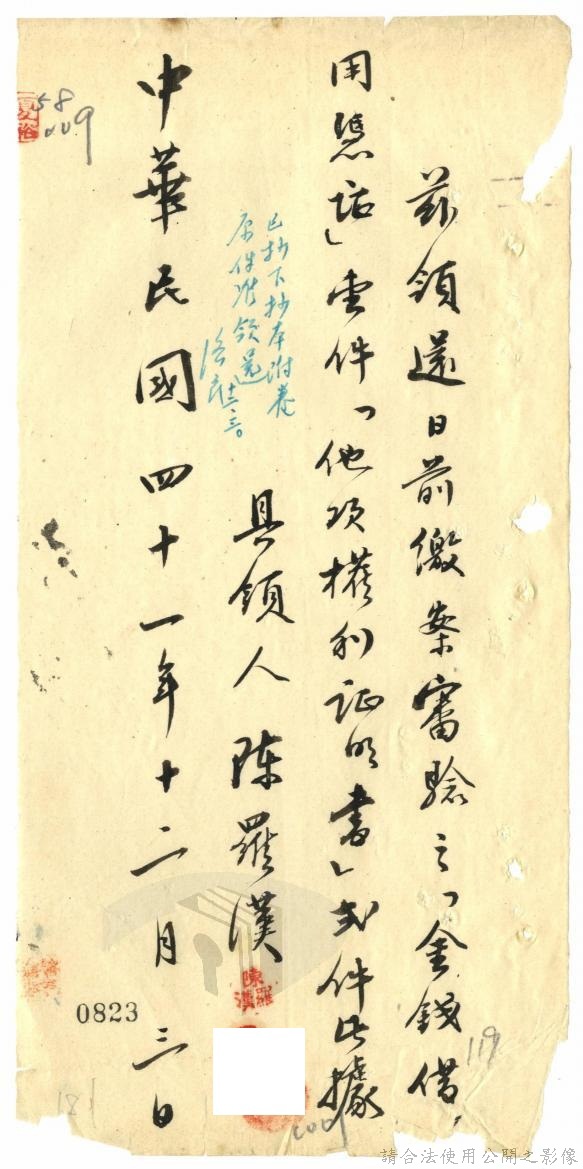 茲領還日前繳案審驗之「金錢借
用憑證」壹件「他項權利證明書」弍件此據
已抄下抄本附卷
原件准領還
具領人 陳羅漢
陳羅漢
中華民國四十一年十二月三日
58
009
0823
119
181
請合法使用公開之影像